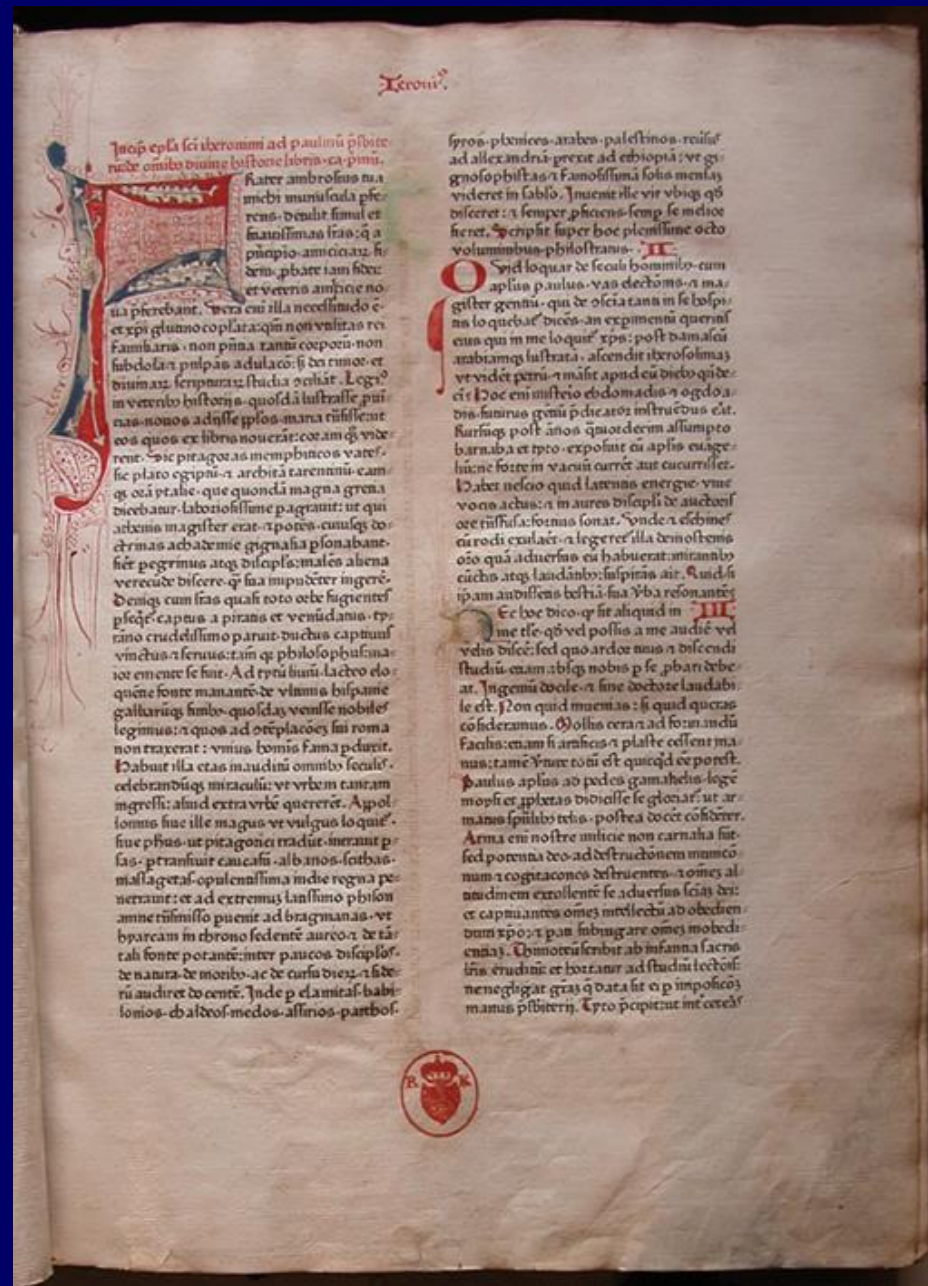 Ieroni⁹.
Incip̄ ep̄la sc̄i iheronimi ad paulinū p̄sbite
rū: de om̄ibꝫ diuine historie libris. ca. p̄mū.
Frater ambrosius tua
michi munuscula ꝑfe
rens. detulit simul et
suauissimas lr̄as: q̄ a
p̄ncipio amiciciaꝝ. fi
dem ꝓbate iam fidei:
et veteris amicicie no
ua ꝑferebant. Vera em̄ illa necessitudo ē.
et xp̄i glutino copĺata: qm̄ non vtilitas rei
familiaris. non p̄ñtia tantū corporū. non
subdola ⁊ palpās adulac̄o: sꝫ dei timor. et
diuinaꝝ scripturaꝝ studia ↄciliāt. Legim⁹
in veteribꝫ historijs. quosdā lustrasse ꝓuī
cias. nouos adijsse ꝓplos. maria trāsisse: ut
eos quos ex libris nouerāt: coram qꝫ vide
rent. Sic pitagoras memphiticos vates.
sic plato egiptū. ⁊ architā tarentinū. eam
qꝫ orā ytalie. que quondā magna grecia
dicebatur. laboriosissime pagrauit: ut qui
athenis magister erat. ⁊ potēs. cuiusqꝫ do
ctrinas achademie gignasia ꝑsonabant.
fieret pegrinus atqꝫ discipls: malēs aliena
verecūde discere. qꝫ sua impudēter ingerē.
Deniqꝫ cum lr̄as quasi toto orbe fugientes
ꝑseqt̄ captus a piratis et venūdatus. ty
rāno crudelissimo paruit. ductus captiuus
vinctus ⁊ seruus: tam̄ qꝫ philosophus: ma
ior emente se fuit. Ad tytū liuiū. lacteo elo
quēcie fonte manantē. de vltimis hispanie
galliarūqꝫ finibꝫ. quosdaꝫ venisse nobiles
legimus: ⁊ quos ad ↄtēplacōeꝫ sui roma
non traxerat: vnius hoīnis fama ꝑduxit.
Habuit illa etas inauditū omnibꝫ seculis.
celebrandūqꝫ miraculū: vt vrbem tantam
ingressi: aliud extra vrbē quererēt. Appol
lonius siue ille magus vt vulgus loquit̄.
siue ph̄us. ut pitagorici tradūt. intrauit ꝑ
sas. ꝑtransiuit caucasū. albanos. scithas.
massagetas. opulentissima indie regna pe
netrauit: et ad extremuꝫ latissimo phison
amne trāsmisso puenit ad bragmanas. vt
hyarcam in throno sedentē aureo. ⁊ de tā
tali fonte potantē: inter paucos discipl̄os.
de natura. de moribꝫ. ac de cursu dierꝝ. ⁊ side
rū audiret docentē. Inde p elamitas. babi
lonios. chaldeos. medos. assirios. parthos.
syros. phenices. arabes. palestinos. reūsus
ad allexandriā. ꝑrexit ad ethiopiā: vt gi
gnosophistas ⁊ famosissimā solis mensaꝫ
videret in sablo. Inuenit ille vir vbiqꝫ qd̄
disceret: ⁊ semper ꝓficiens. semꝑ se melior
fieret. Scripsit super hoc plenissime octo
voluminibus. philostratus. II
Quid loquar de seculi hominibꝫ. cum
apl̄us paulus. vas electōnis. ⁊ ma
gister gentiū. qui de ↄscīa tanti in se hospi
tis loquebat̄ dicēs. an exꝑimentū queritis
eius qui in me loquit̄ xp̄s: post damascū
arabiamqꝫ lustratā. ascendit iherosolimaꝫ
vt vidēt petrū. ⁊ māsit apud eū diebꝫ qn̄de
cī. Hoc eni misterio ebdomadis ⁊ ogdoa
dis. futurus gentiū p̄dicator instruēdus erat.
Rursūqꝫ post ānos q̄tuordecim assumpto
barnaba et tyto. exposuit cū apl̄is euāge
liū: ne forte in vacuū currēt aut cucurrisset.
Habet nescio quid latentis energie. viue
vocis actus: ⁊ in aures discipl̄i de auctoris
ore trāsfusa: fortius sonat. Vnde ⁊ eschines
cū rodi exularet. ⁊ legeret̄ illa demostenis
or̄o quā aduersus eū habuerat: mirantibꝫ
cūctis atqꝫ laudātibꝫ: suspirās ait. Quid si
ip̄am audissetis bestiā. sua v̄ba resonantē?
Nec hoc dico. qꝫ sit aliquid in III
me tale. qd̄ vel possis a me audire vel
velis discē: sed quo ardor tuus ⁊ discendi
studiū. etiam absqꝫ nobis p se ꝓbari debe
at. Ingeniū docile. ⁊ sine doctore laudabi
le est. Non quid inuenias: sꝫ quid queras
cōsideramus. Mollis cera ⁊ ad formandū
facilis: etiam si artificis ⁊ plaste cessent ma
nus: tamē v̄tute totū est quicqd̄ eē potest.
Paulus apl̄us ad pedes gamalielis. legē
moysi et ꝓphetas didicisse se gloriat̄: ut ar
matus sp̄ūlibꝫ telis. postea docēt cōfidēter.
Arma em̄ nostre milicie non carnalia sūt.
sed potentia deo. ad destructōnem municō
num ⁊ cogitacōnes destruentes. ⁊ om̄eꝫ al
titudinem extollentē se aduersus sciāꝫ dei:
et captiuantes om̄eꝫ intellectū ad obedien
dum xp̄o: ⁊ pati subiugare om̄eꝫ inobedi
entiaꝫ. Thimoteū scribit ab infantia sacris
lr̄is eruditū: et hortatur ad studiū lectōis:
ne negligat gr̄aꝫ q̄ data sit ei p impositōꝫ
manus p̄sbiterij. Tyto p̄cipit: ut int̄ ceteras
R K